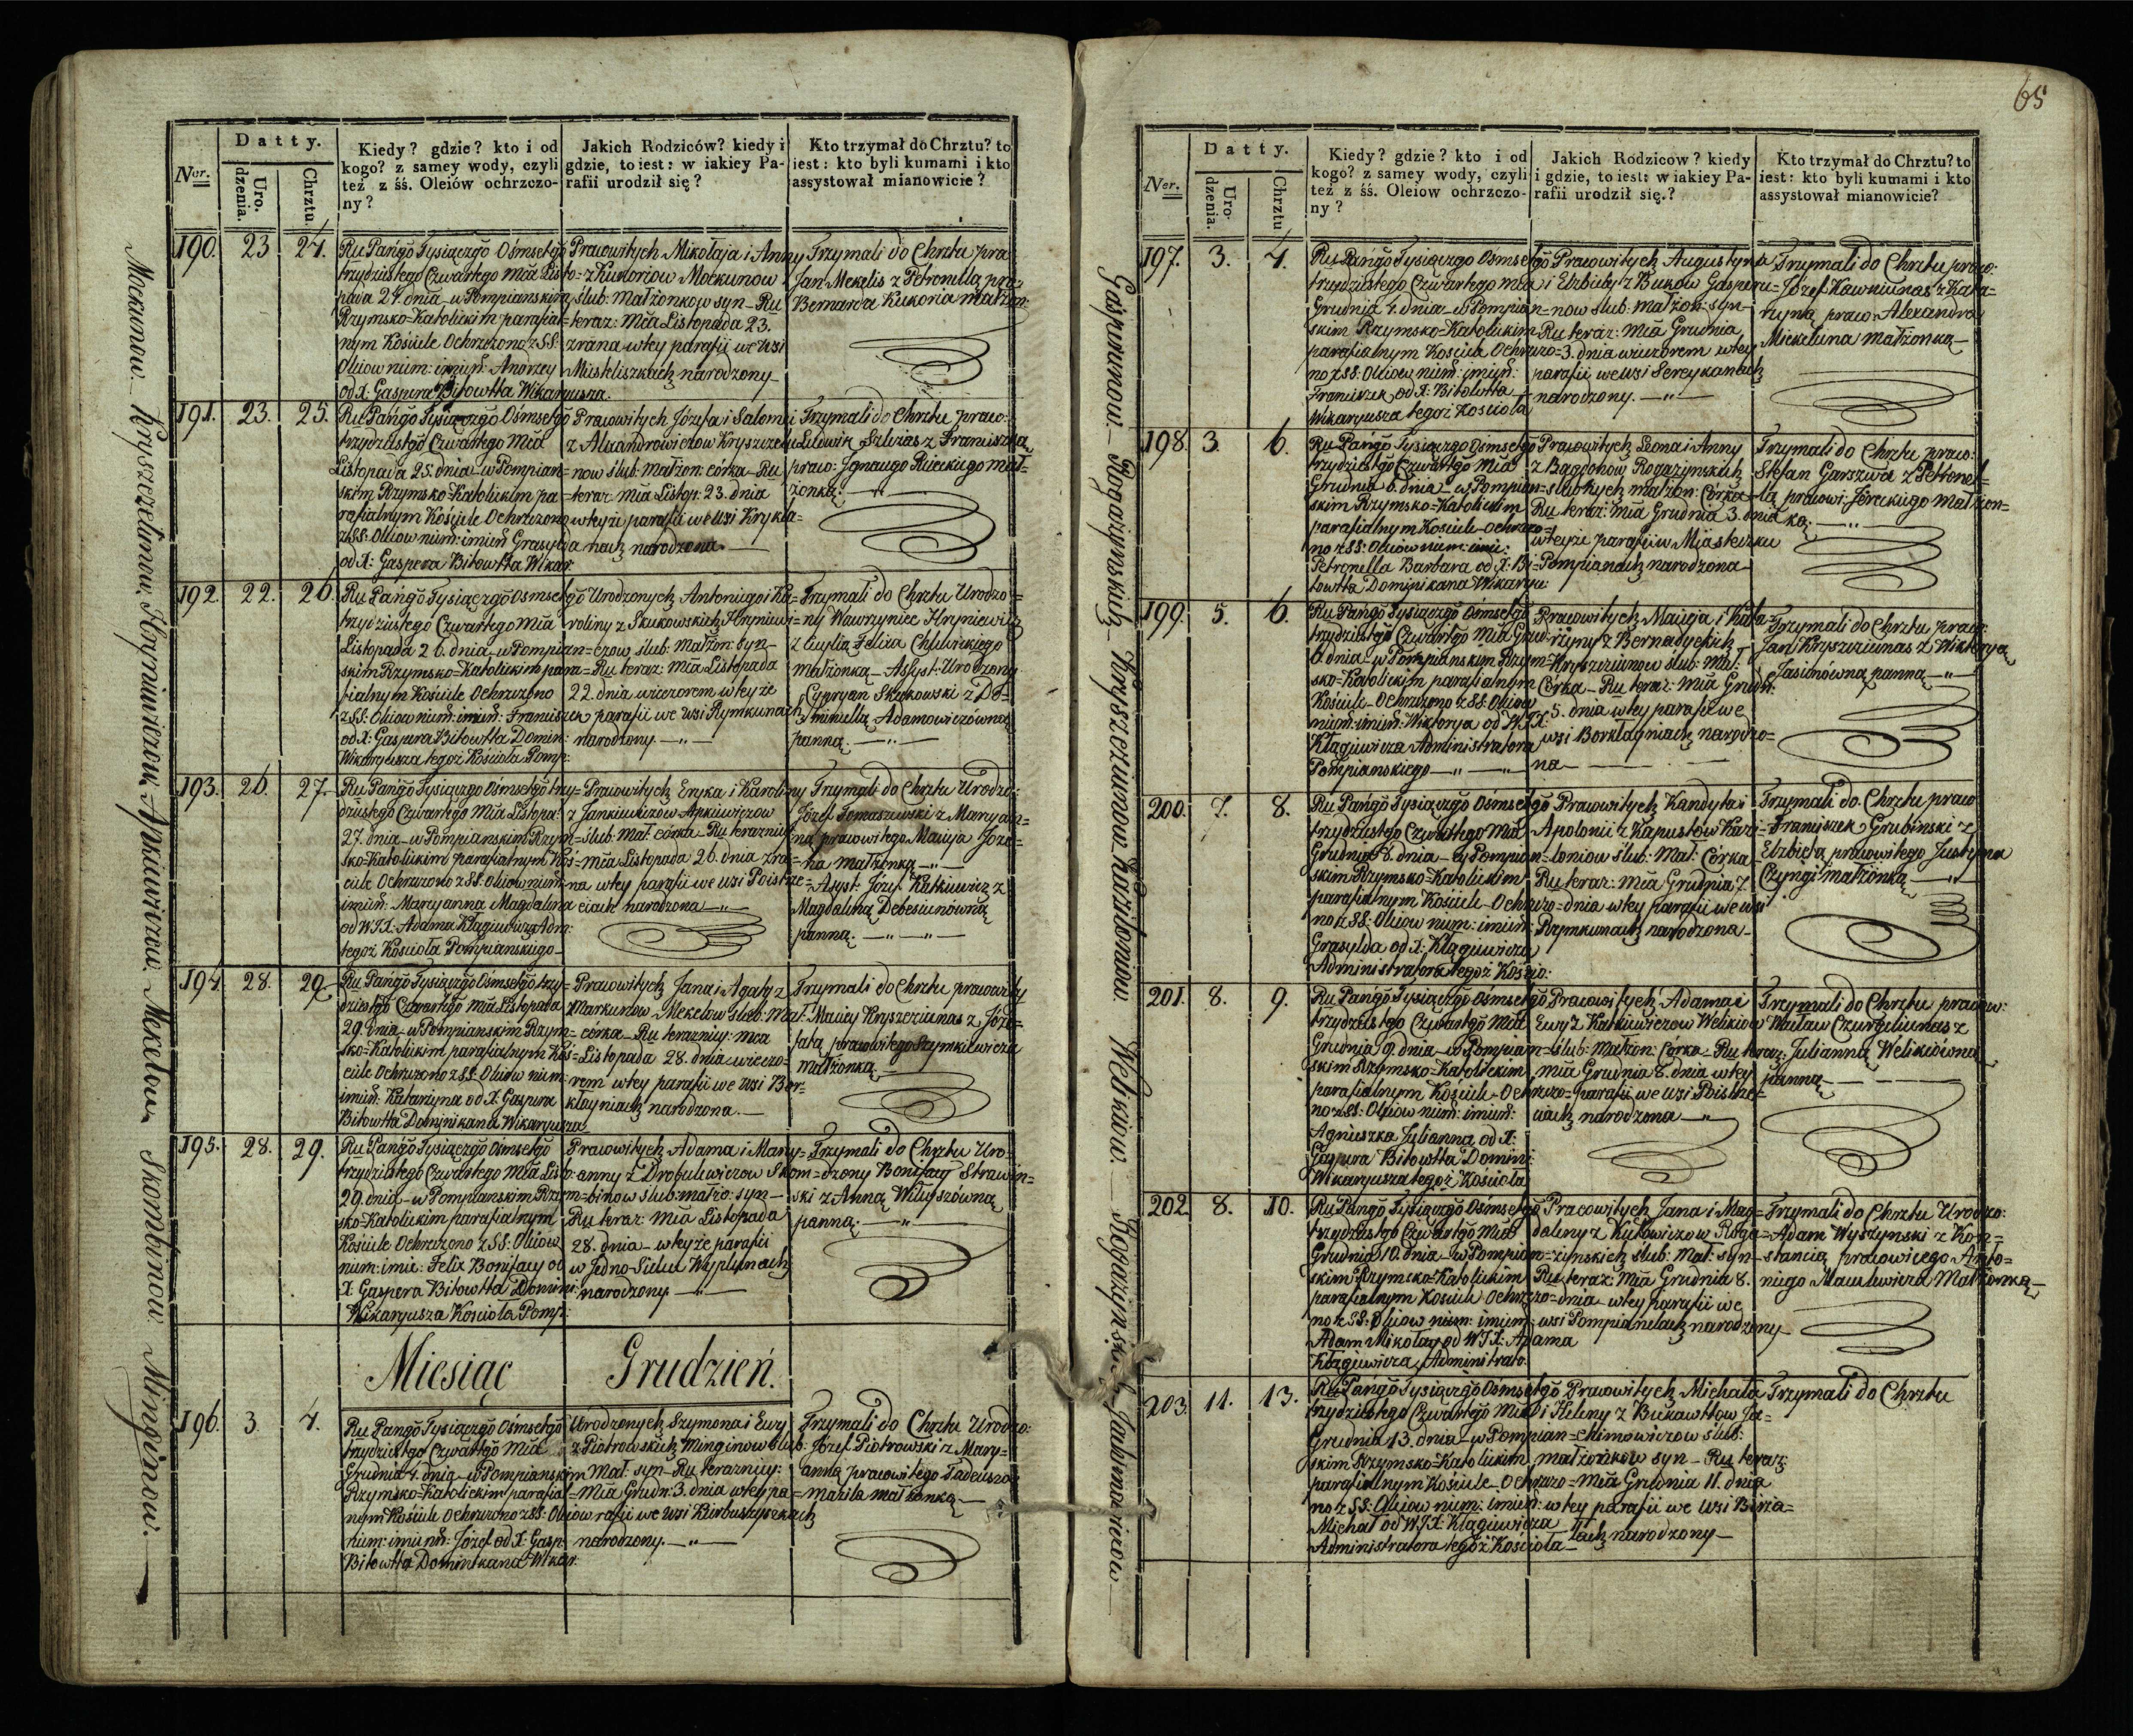 65
Ner.
Datty.
Uro. dzenia.
Chrztu
Kiedy? gdzie? kto i od
kogo? z samey wody, czyli
też z śś. Oleiów ochrzczo-
ny?
Jakich Rodziców? kiedy i
gdzie, to iest: w iakiey Pa-
rafii urodził się?
Kto trzymał do Chrztu? to
iest: kto byli kumami i kto
assystował mianowicie?
190. 23 24.
Ru Pańgo Tysiączgo Ośmsetgo
trzydziestego Czwartego Mca Listo=
pada 24 dnia w Pompianskim
Rzymsko-Katolickim parafial=
nym Kościele Ochrzczono z SS:
Oleiow nim: imień: Andrzey
od X: Gaspera Bitowtta Wikaryusza
Pracowitych Mikołaja i Anny
z Kukoriow Mockunow
ślub: Małżonkow syn - Ru
teraz: Mca Listopada 23.
zrana w tey parafii we wsi
Muskliszkach narodzony
Trzymali do Chrztu pra:
Jan Mekelis z Petronellą pra:
Bernarda Kukoria małżon:
191. 23. 25.
Ru Pańgo Tysiączgo Ośmsetgo
trzydziestgo Czwartego Mca
Listopada 25. dnia w Pompian=
skim Rzymsko-Katolickim pa=
rafialnym Kościele Ochrzczono
z SS: Oleiow nim: imień Grasylda
od X: Gaspera Bitowtta Wikar:
Pracowitych Józefa i Salomei
z Alexandrowiczow Kryszczeliu
now ślub: Małżon: córka - Ru
teraz: Mca Listop: 23. dnia
w teyże parafii we wsi Krykla=
nach narodzona.
Trzymali do Chrztu praco:
Ludwik Szlizas z Franciszką
praco: Ignacego Rieckiego mał=
żonką:
192. 22. 26.
Ru Pańgo Tysiączgo Ośmsetgo
trzydziestego Czwartego Mca
Listopada 26. dnia w Pompian=
skim Rzymsko-Katolickim para=
fialnym Kościele Ochrzczono
z SS: Oleiow nim: imień: Franciszek
od X: Gaspera Bitowtta Domin:
Wikaryusza tegoż Kościoła Pomp:
Urodzonych Antoniego i Ka=
roliny z Skukowskich Hryniewi=
czow ślub: Małżon: syn
Ru teraz: Mca Listopada
22. dnia wieczorem w teyże
parafii we wsi Rymkunach
narodzony.
Trzymali do Chrztu Urodzo=
ny Wawrzyniec Hryniewicz
z Eucylią Felixa Chlewickiego
Małżonką - Assyst: Urodzony
Cypryan Skukowski z Do=
minicellą Adamowiczówną
panną.
193. 26. 27.
Ru Pańgo Tysiączgo Ośmsetgo trzy=
dziestego Czwartego Mca Listopa:
27. dnia w Pompianskim Rzym=
sko-Katolickim parafialnym Koś=
ciele Ochrzczono z SS: Oleiow nim:
imień: Maryanna Magdalina
od WJX: Adama Kłągiewicza Adm:
tegoż Kościoła Pompianskiego
Pracowitych Eryka i Karoliny
z Jankiewiczow Apkiewiczow
ślub: Mał: córka Ru teraznieyś:
Mca Listopada 26. dnia zra=
na w tey parafii we wsi Poistrze=
ciach narodzona
Trzymali do Chrztu Urodzo:
Józef Tomaszewski z Maryan=
ną pracowitego Macieja Jozo=
na małżonką
Asyst: Józef Katkiewicz z
Magdaliną Debesiunówną
panną.
194. 28. 29.
Ru Pańgo Tysiączgo Ośmsetgo trzy=
dziestgo Czwartgo Mca Listopada
29. dnia w Pompianskim Rzym=
sko-Katolickim parafialnym Koś=
ciele Ochrzczono z SS: Oleiow nim:
imień: Katarzyna od X: Gaspera
Bitowtta Dominikana Wikaryusza
Pracowitych Jana i Agaty z
Markunow Mekelow ślub: Mał:
córka - Ru teraznieys: Mca
Listopada 28. dnia wieczo=
rem w tey parafii we wsi Bor=
kłoyniach narodzona.
Trzymali do Chrztu pracowity
Maciey Kryszeziunas z Józe=
fatą pracowitego Szymkiewicza
małżonką.
195. 28. 29.
Ru Pańgo Tysiączgo Ośmsetgo
trzydziestego Czwartego Mca Listo:
29. dnia w Pompianskim Rzym=
sko-Katolickim parafialnym
Kościele Ochrzczono z SS: Oleiow
nim: imie: Felix Bonifacy od
X: Gaspera Bitowtta Domini:
Wikaryusza Kościoła Pomp:
Pracowitych Adama i Mary=
anny z Drobulewiczow Skom=
binow ślub: małżo: syn
Ru teraz: Mca Listopada
28. dnia w teyże parafii
w Jedno-Sielui Wyplynach
narodzony
Trzymali do Chrztu Uro=
dzony Bonifacy Strawin=
ski z Anną Wituszówną
panną:
Miesiąc Grudzień.
196. 3. 4.
Ru Pańgo Tysiączgo Ośmsetgo
trzydziestgo Czwartgo Mca
Grudnia 4. dnia w Pompianskim
Rzymsko-Katolickim parafial=
nym Kościele Ochrzczono z SS: Oleiow
nim: imień: Józef od X: Gasp:
Bitowtta Dominikana Wikar:
Urodzonych Szymona i Ewy
z Piotrowskich Minginow ślub:
Mał: syn - Ru teraznieys:
Mca Grudn: 3. dnia w tey pa=
rafii we wsi Kurbuszyszkach
narodzony.
Trzymali do Chrztu Urodzo:
Józef Piotrowski z Mary=
anną pracowitego Tadeusza
mazila małżonką
Mockunow. Kryszzeliunow. Hryniewiczow. Apkiewiczow. Mekelow. Skombinow. Minginow.
Ner.
Datty.
Uro- dzenia.
Chrztu
Kiedy? gdzie? kto i od
kogo? z samey wody, czyli
też z śś. Oleiow ochrzczo-
ny?
Jakich Rodziców? kiedy
i gdzie, to iest: w iakiey Pa-
rafii urodził się.?
Kto trzymał do Chrztu? to
iest: kto byli kumami i kto
assystował mianowicie?
197. 3. 4.
Ru Pańgo Tysiączgo Ośmsetgo
trzydziestego Czwartego Mca
Grudnia 4. dnia w Pompian=
skim Rzymsko-Katolickim
parafialnym Kościele Ochrzczo=
no z SS: Oleiow nim: imień:
Franciszek od X: Bitowtta
Wikaryusza tegoż Kościoła
Pracowitych Augustyna
i Elżbiety z Bukow Gasperu=
now ślub: Małżon: syn
Ru teraz: Mca Grudnia
3. dnia wieczorem w tey
parafii we wsi Sereykanach
narodzony.
Trzymali do Chrztu praco:
Józef Kawniunas z Kata=
rzyną praco: Alexandra
Mickeluna małżonką
198. 3. 6.
Ru Pańgo Tysiączgo Ośmsetgo
trzydziestgo Czwartgo Mca
Grudnia 6. dnia w Pompian=
skim Rzymsko-Katolickim
parafialnym Kościele ochrzczo=
no z SS: Oleiow nim: imie:
Petronella Barbara od X: Bi=
towtta Dominikana Wikaryu:
Pracowitych Leona i Anny
z Bagdonow Rogazynskich
slubnych małżon: Córka
Ru teraz: Mca Grudnia 3. dnia
w teyże parafii w Miasteczku
Pompianach narodzona
Trzymali do Chrztu praco:
Stefan Garszwa z Petronel=
lą pracowi: Joreckiego Małżon=
ką.
199. 5. 6.
Ru Pańgo Tysiączgo Ośmsetgo
trzydziestgo Czwartgo Mca Gru:
6 dnia w Pompianskim Rzym=
sko-Katolickim parafialnym
Kościele Ochrzczono z SS: Oleiow
nim: imień: Wiktorya od WJX:
Kłągiewicza Administratora
Pompianskiego
Pracowitych Macieja i Kata=
rzyny z Bernadyckich
Kryszeziunow ślub: Mał:
Córka - Ru teraz: Mca Grudn:
5. dnia w tey parafii we
wsi Borkłayniach narodzo=
na
Trzymali do Chrztu praco:
Jan Kryszeziunas z Wiktoryą
Jasiunówną panną
200. 7. 8.
Ru Pańgo Tysiączgo Ośmsetgo
trzydziestgo Czwartego Mca
Grudnia 8. dnia w Pompian=
skim Rzymsko-Katolickim
parafialnym Kościele Ochrzczo=
no z SS: Oleiow nim: imień:
Grasylda od X: Kłągiewicza
Administratora tegoż Kościo:
Pracowitych Kandyta i
Apolonii z Kapustow Kazi=
loniow ślub: Mał: Córka
Ru teraz: Mca Grudnia 7.
dnia w tey parafii we wsi
Rymkunach narodzona
Trzymali do Chrztu praco:
Franciszek Grubinski z
Elżbietą pracowitego Justyna
Czyngi małżonką
201. 8. 9.
Ru Pańgo Tysiączgo Ośmsetgo
trzydziestgo Czwartgo Mca
Grudnia 9. dnia w Pompian=
skim Rzymsko-Katolickim
parafialnym Kościele Ochrzczo=
no z SS: Oleiow nim: imień:
Agnieszka Julianna od X:
Gaspera Bitowtta Domini:
Wikaryusza tegoż Kościoła
Pracowitych Adama i
Ewy z Katkiewiczow Welikiow
ślub: Małżon: Córka Ru teraz:
Mca Grudnia 8. dnia w tey
parafii we wsi Poistrze=
ciach narodzona
Trzymali do Chrztu pracow:
Wacław Czurgeliunas z
Julianną Welikiówną
panną
202. 8. 10.
Ru Pańgo Tysiączgo Ośmsetgo
trzydziestgo Czwartgo Mca
Grudnia 10. dnia w Pompian=
skim Rzymsko-Katolickim
parafialnym Kościele Ochrzczo=
no z SS: Oleiow nim: imień:
Adam Mikołay od WJX: Adama
Kłągiewicza Administrato:
Pracowitych Jana i Mag=
daleny z Kutowiczow Roga=
zinskich ślub: Mał: syn
Ru teraz: Mca Grudnia 8.
dnia w tey parafii we
wsi Pompianelach narodzony
Trzymali do Chrztu Urodzo:
Adam Wyszynski z Kon=
stancią pracowitego Anto=
niego Mackiewicza Małżonką
203. 11. 13.
Ru Pańgo Tysiączgo Ośmsetgo
trzydziestego Czwartgo Mca
Grudnia 13. dnia w Pompian=
skim Rzymsko-Katolickim
parafialnym Kościele Ochrzczo=
no z SS: Oleiow nim: imień:
Michał od WJX: Kłągiewicza
Administratora tegoż Kościoła
Pracowitych Michała
i Heleny z Biekawttow Ja=
chimowiczow ślub:
małżonkow syn - Ru teraz:
Mca Grudnia 11. dnia
w tey parafii we wsi Birża=
łach narodzony
Trzymali do Chrztu
Gasperunow. Rogazynskich. Kryszeziunow. Kaziloniow. Welikiow. Rogazynskich. Jachimowiczow